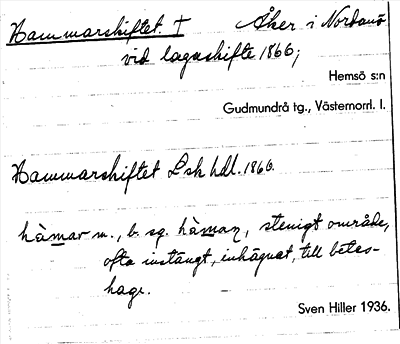 Hammarshiftet. † Åker i Nordanö
vid lagashifte 1866;
Hemsö s:n
Gudmundrå tg., Västernorrl. l.
Hammarshiftet Lsk hdl. 1866.
hàmar m., b. sg. hàmaṇ, stenigt område,
ofta instängt, inhägnat, till betes-
hage.
Sven Hiller 1936.